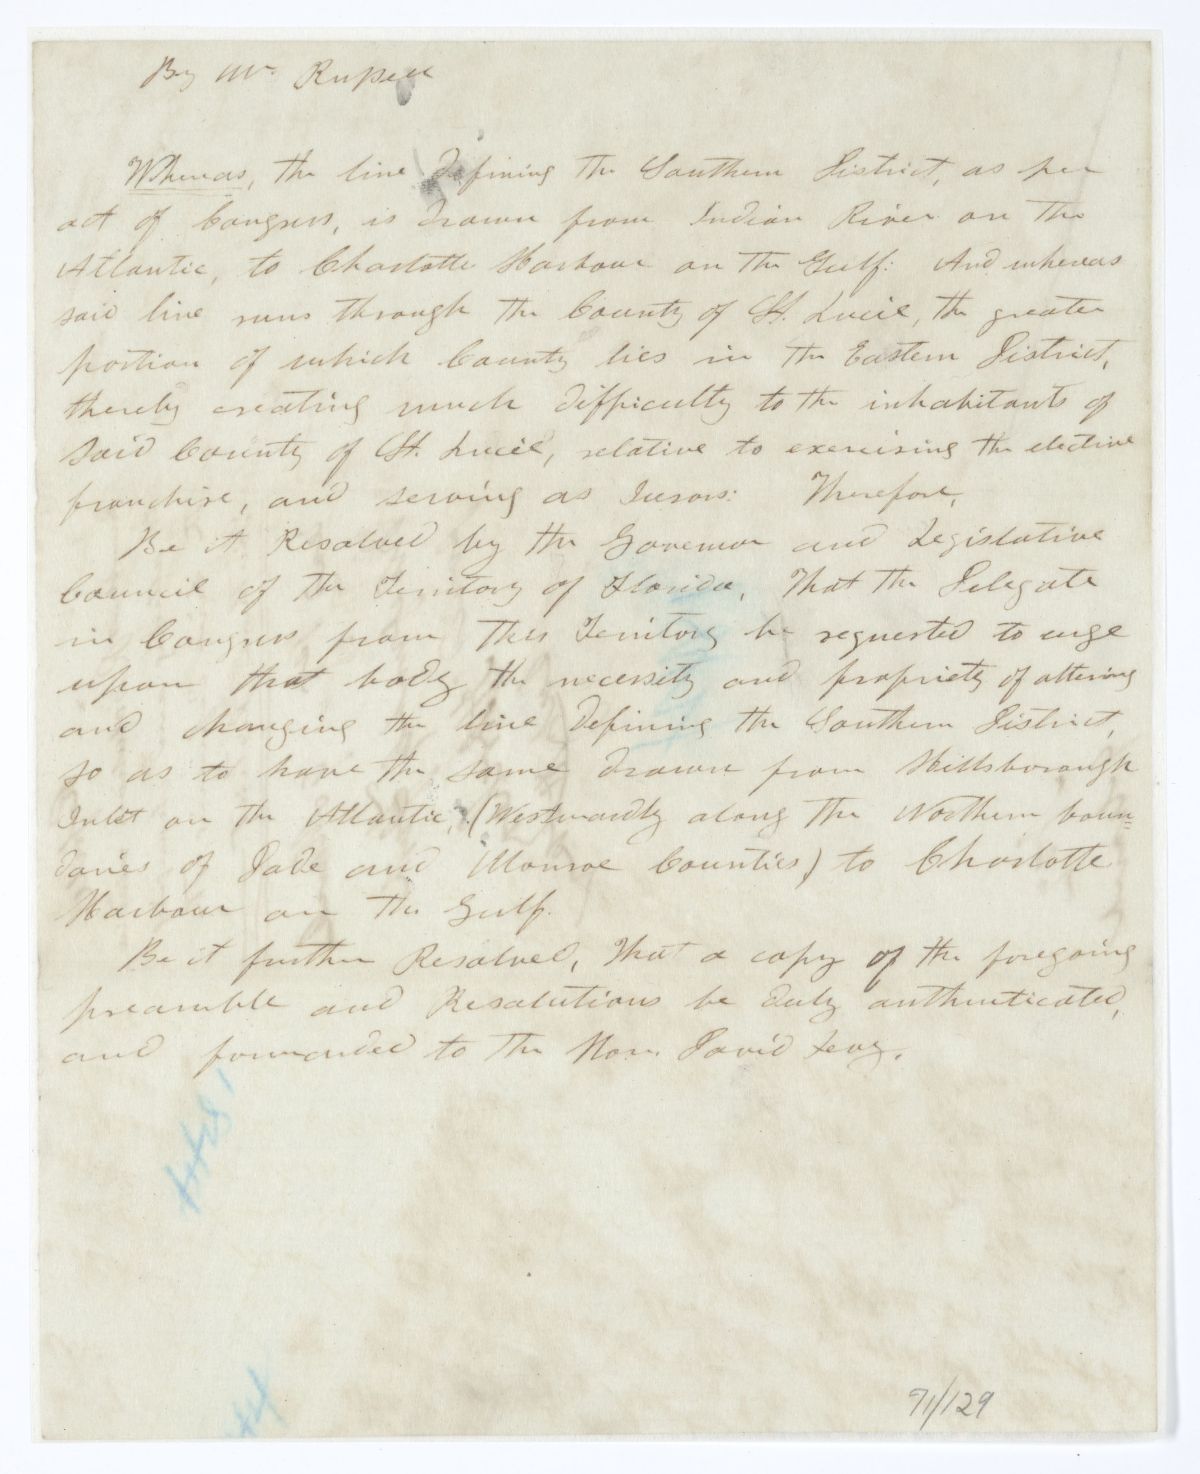 By Mr. Russell
Whereas, the line defining the Southern District, as per
act of Congress, is drawn from Indian River on the
Atlantic, to Charlotte Harbour on the Gulf: And whereas
said line runs through the County of St. Lucie, the greater
portion of which County lies in the Eastern District,
thereby creating much difficulty to the inhabitants of
said County of St. Lucie, relative to exercising the elective
franchise, and serving as Jurors: Therefore,
Be it Resolved by the Governor and Legislative
Council of the Territory of Florida, That the Delegate
in Congress from this Territory be requested to urge
upon that body the necessity and propriety of altering
and changing the line defining the Southern District,
so as to have the same drawn from Hillsborough
Inlet on the Atlantic, (Westwardly along the Northern boun=
daries of Dade and Monroe Counties) to Charlotte
Harbour on the Gulf.
Be it further Resolved, That a copy of the foregoing
preamble and Resolutions be duly authenticated,
and forwarded to the Hon. David Levy.
71/129